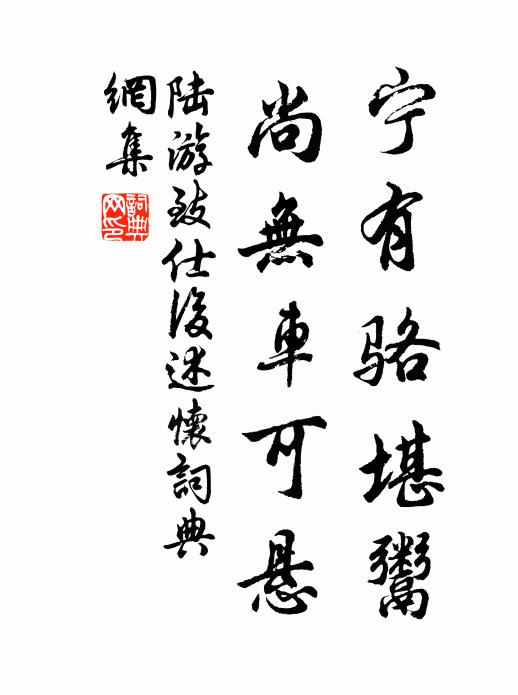 宁有骆堪鬻
尚無車可悬
陆游致仕後述懷詞典
網集
詞典网印